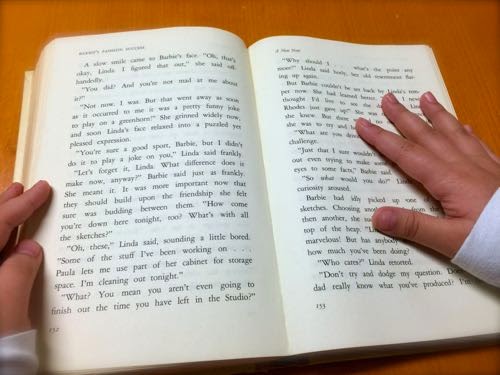 BARBIE'S FASHION SUCCESS
A slow smile came to Barbie's face. "Oh, that's
okay, Linda. I figured that out," she said off-
handedly.
"You did? And you're not mad at me about
it?"
"Not now. I was. But that went away as soon
as it occurred to me it was a pretty funny joke
to play on a greenhorn!" She grinned widely now,
and soon Linda's face relaxed into a puzzled yet
pleased expression.
"You're sure a good sport, Barbie, but I didn't
do it to play a joke on you," Linda said frankly.
"Let's forget it, Linda. What difference does it
make now, anyway?" Barbie said just as frankly.
She meant it. It was more important now that
they should build upon the friendship she felt
sure was budding between them. "How come
you're down here tonight, too? What's with all
the sketches?"
"Oh, these," Linda said, sounding a little bored.
"Some of the stuff I've been working on . . .
Paula lets me use part of her cabinet for storage
space. I'm cleaning out tonight."
"What? You mean you aren't even going to
finish out the time you have left in the Studio?"
152
A New Note
"Why should I . . . what's the point any
more?" Linda said hotly, her old resentment flar-
ing up again.
But Barbie couldn't be set back by Linda's tem-
per now. She had learned better.
thought I'd live to see the I never
Rhodes just gave up!" She was
she knew. But there
she was to try and
"What are you
challenge.
"Just that I sure wouldn't
out even trying to make some
eyes to some facts," Barbie said
"So what would you do?" Linda
curiosity aroused.
Barbie had idly picked up one of
sketches. Choosing another from
then another, she
top of the heap. "Linda
marvelous! But has anybody
how much you've been doing?"
"Who cares?" Linda retorted.
"Don't try and dodge my question. Does
dad really know what you've produced? I'm
153